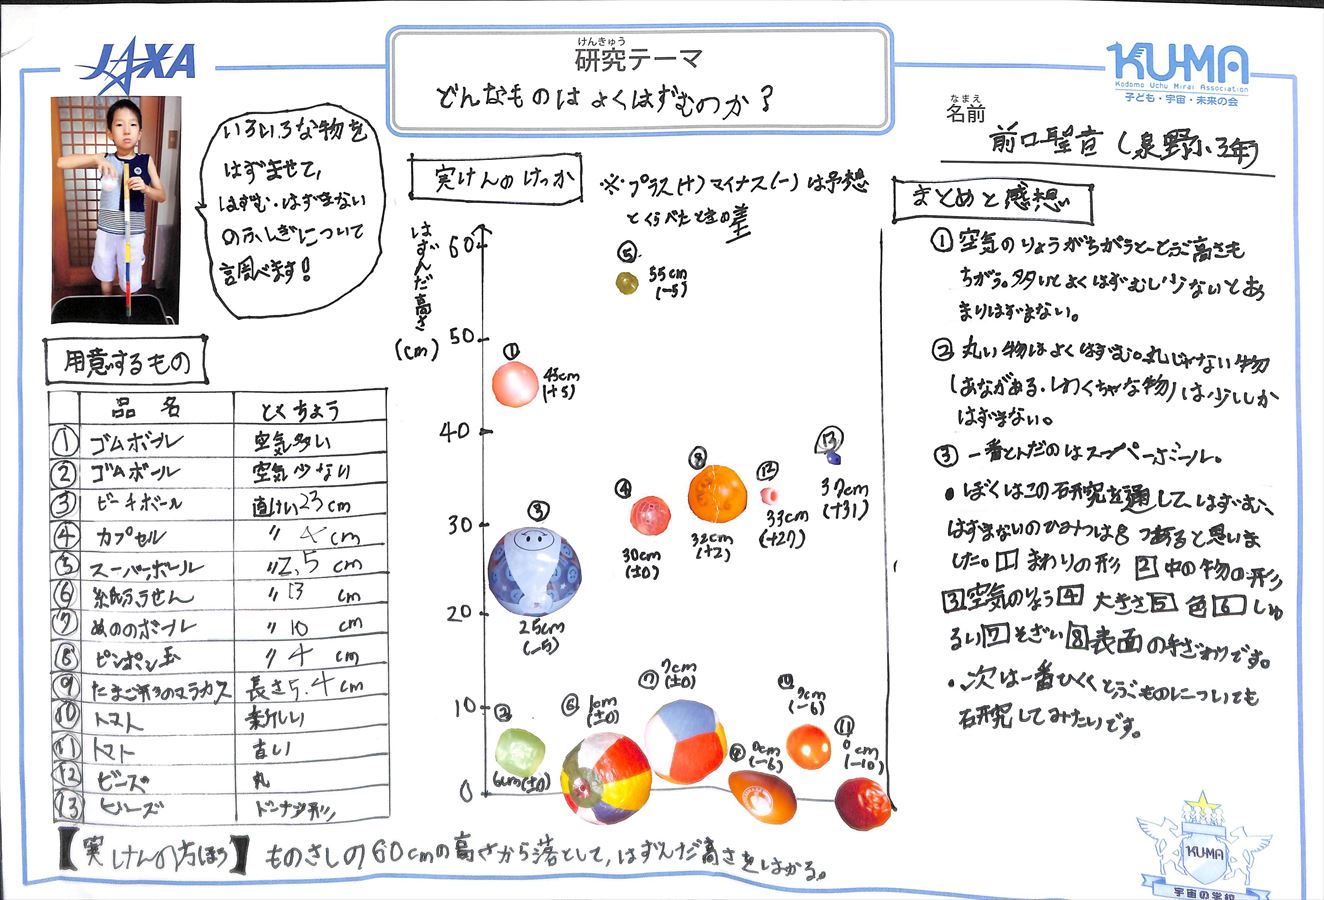 JAXA
けんきゅう
研究テーマ
どんなものはよくはずむのか?
KU-MA
Kodomo Uchu Mirai Association
子ども・宇宙・未来の会
なまえ
名前
前口聖音(泉野小3年)
いろいろな物を
はずませて,
はずむ・はずまない
のふしぎについて
調べます!
用意するもの
品 名 とくちょう
① ゴムボール 空気多い
② ゴムボール 空気少ない
③ ビーチボール 直けい23cm
④ カプセル 〃 4cm
⑤ スーパーボール 〃2.5cm
⑥ 紙ふうせん 〃13cm
⑦ ぬののボール 〃10cm
⑧ ピンポン玉 〃4cm
⑨ たまご形のマラカス 長さ5.4cm
10 トマト 新しい
11 トマト 古い
12 ビーズ 丸
13 ビーズ ドーナツ形
【実けんの方ほう】ものさしの60cmの高さから落として,はずんだ高さをはかる。
実けんのけっか
※プラス(+)マイナス(-)は予想
とくらべたときの差
はずんだ高さ
(cm)
60
50
40
30
20
10
0
⑤
55cm
(-5)
①
45cm
(+5)
⑬
37cm
(+31)
④
30cm
(±0)
⑧
32cm
(+2)
⑫
33cm
(+27)
③
25cm
(-5)
②
6cm(±0)
⑥
1cm
(±0)
⑦
7cm
(±0)
⑨
0cm
(-6)
⑩
(-6)
⑪
0cm
(-10)
まとめと感想
① 空気のりょうがちがうととぶ高さも
ちがう。多いとよくはずむし少ないとあ
まりはずまない。
② 丸い物はよくはずむ。丸じゃない物
(あながある・しわくちゃな物)は少ししか
はずまない。
③ 一番とんだのはスーパーボール。
・ぼくはこの研究を通して、はずむ、
はずまないのひみつは8つあると思いま
した。1まわりの形 2中の物の形
3空気のりょう4大きさ5色6しゅ
るい7そざい8表面の手ざわりです。
・次は一番ひくくとぶものについても
研究してみたいです。
KU-MA
宇宙の学校